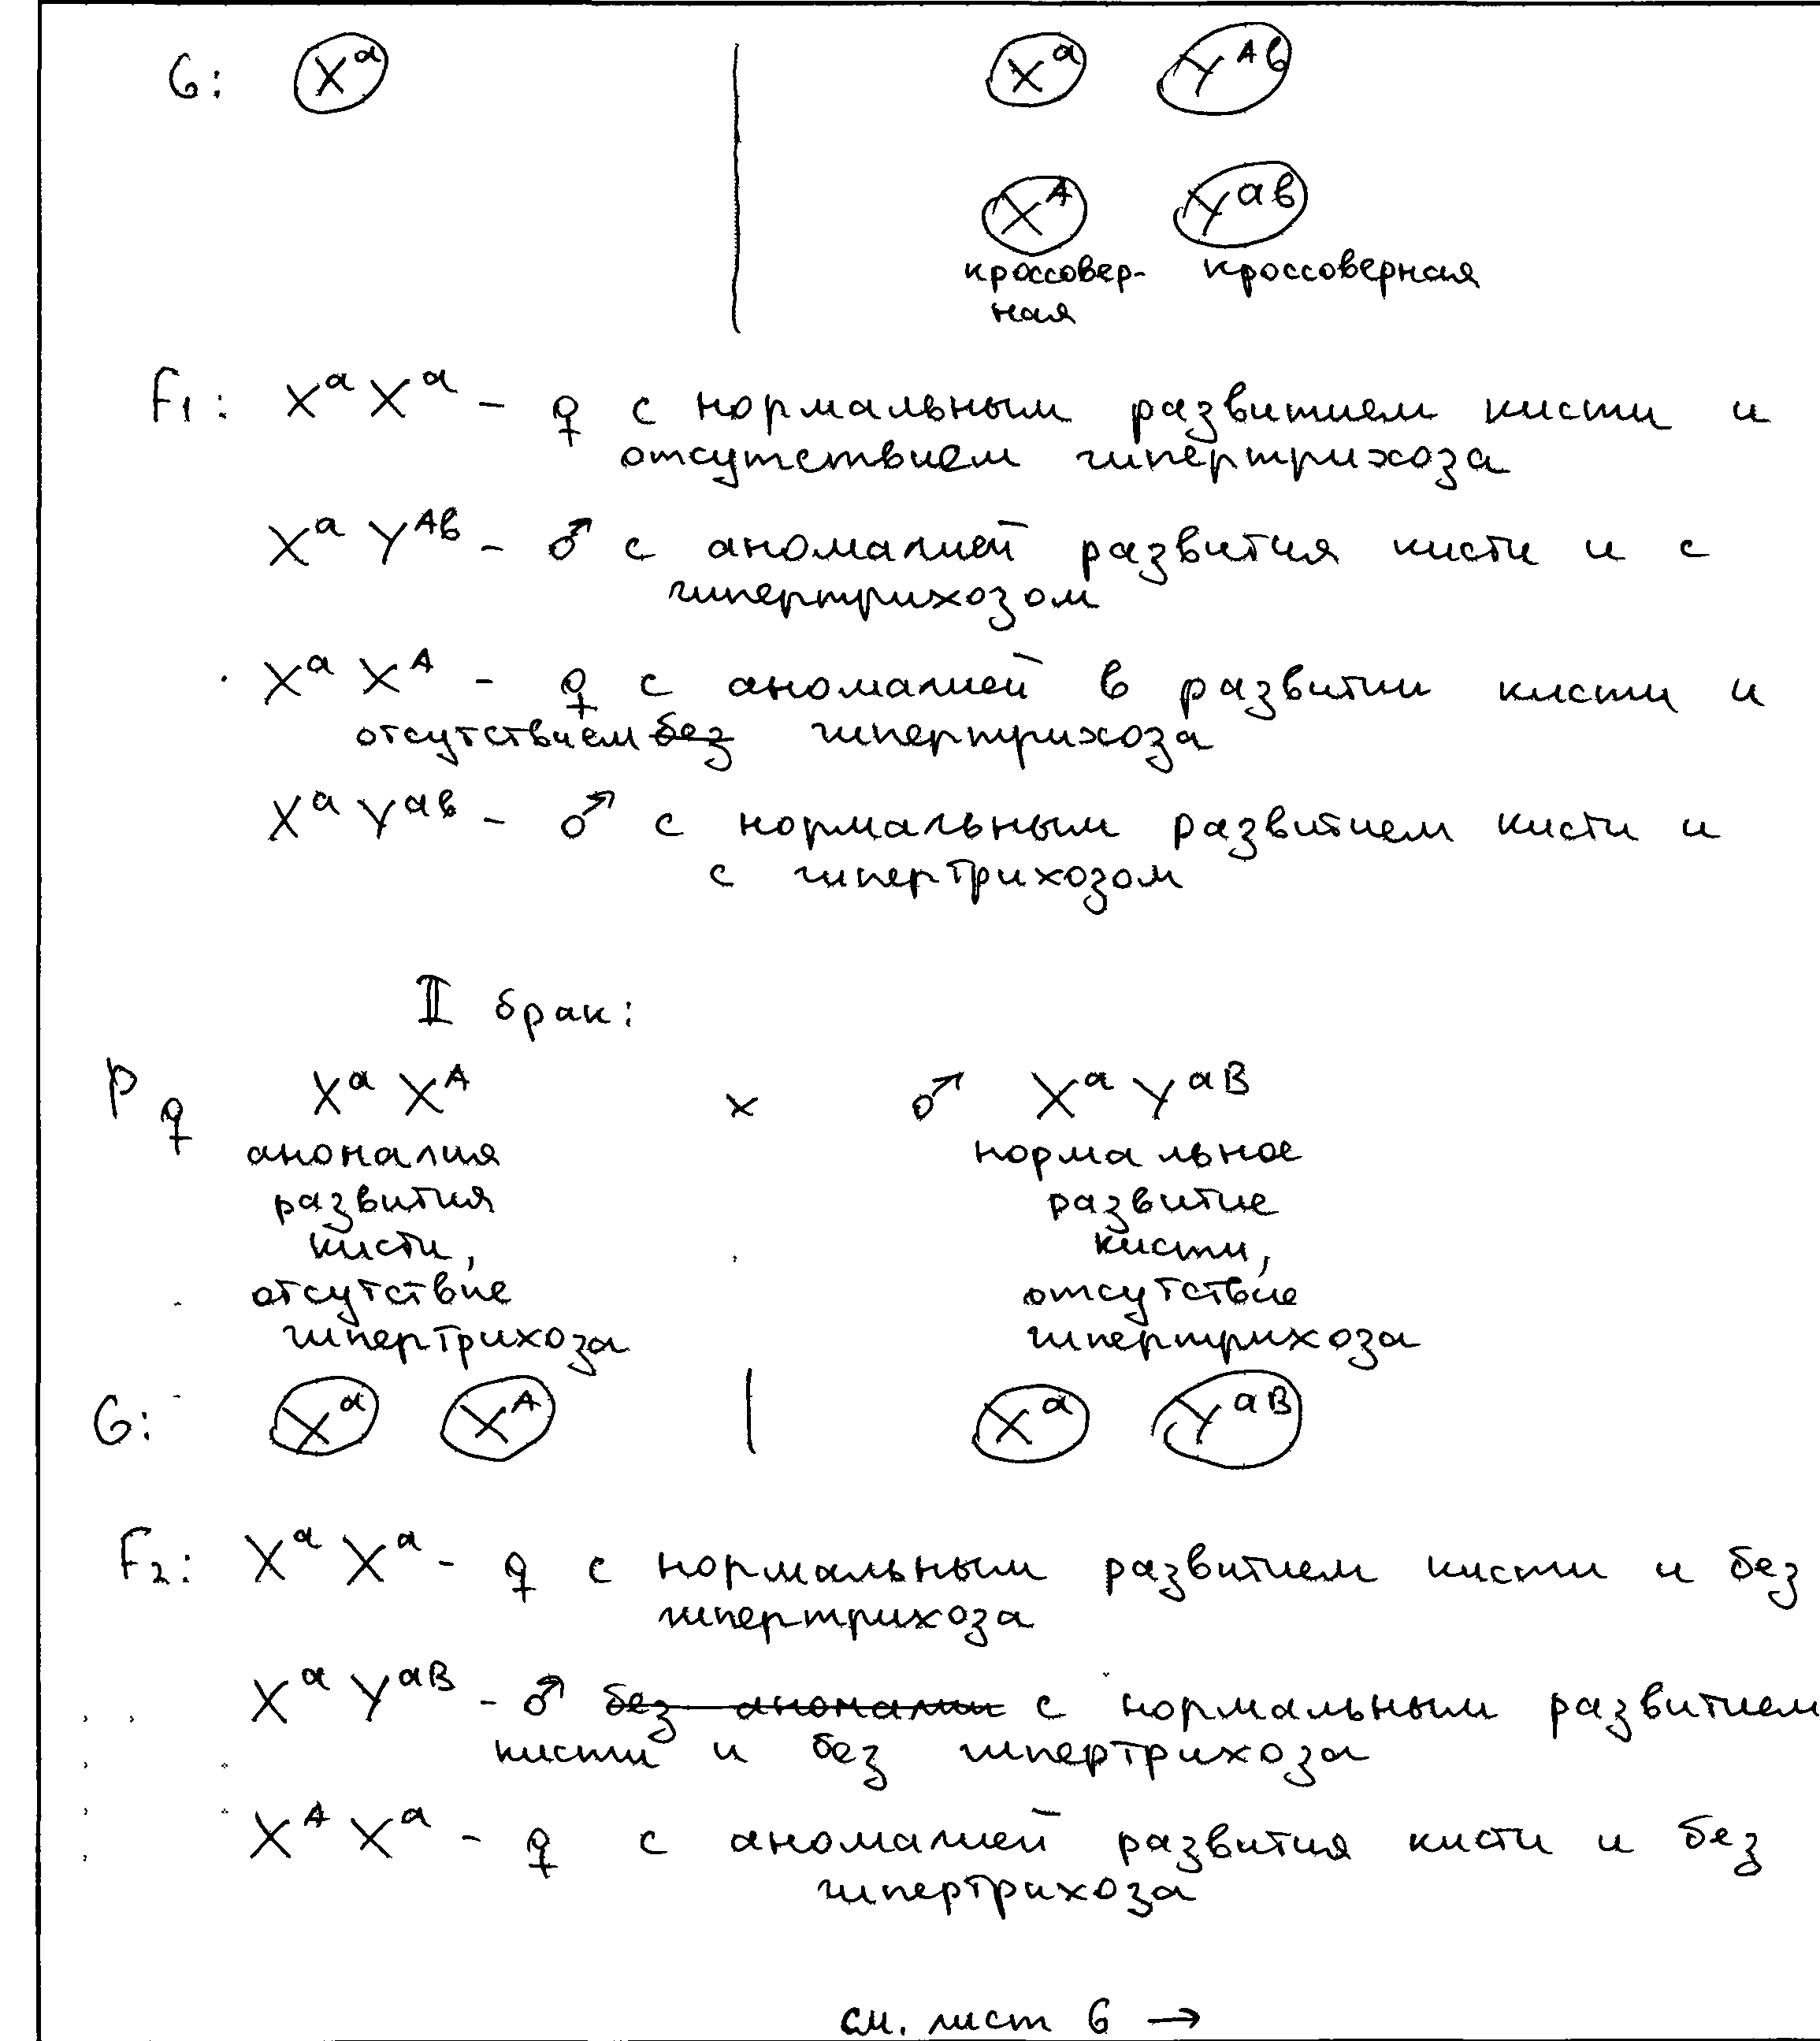 G: Xᵃ | Xᵃ Yᴬᵇ
Xᴬ Yᵃᵇ
кроссовер- кроссоверная
ная
F₁: XᵃXᵃ - ♀ с нормальным развитием кисти и
отсутствием гипертрихоза
XᵃYᴬᵇ - ♂ с аномалией развития кисти и с
гипертрихозом
XᵃXᴬ - ♀ с аномалией в развитии кисти и
отсутствием без гипертрихоза
XᵃYᵃᵇ - ♂ с нормальным развитием кисти и
с гипертрихозом
II брак:
P ♀ XᵃXᴬ x ♂ XᵃYᵃᴮ
аномалия нормальное
развития развитие
кисти, кисти,
отсутствие отсутствие
гипертрихоза гипертрихоза
G: Xᵃ Xᴬ | Xᵃ Yᵃᴮ
F₂: XᵃXᵃ - ♀ с нормальным развитием кисти и без
гипертрихоза
XᵃYᵃᴮ - ♂ без аномалии с нормальным развитием
кисти и без гипертрихоза
XᴬXᵃ - ♀ с аномалией развития кисти и без
гипертрихоза
см. лист 6 →